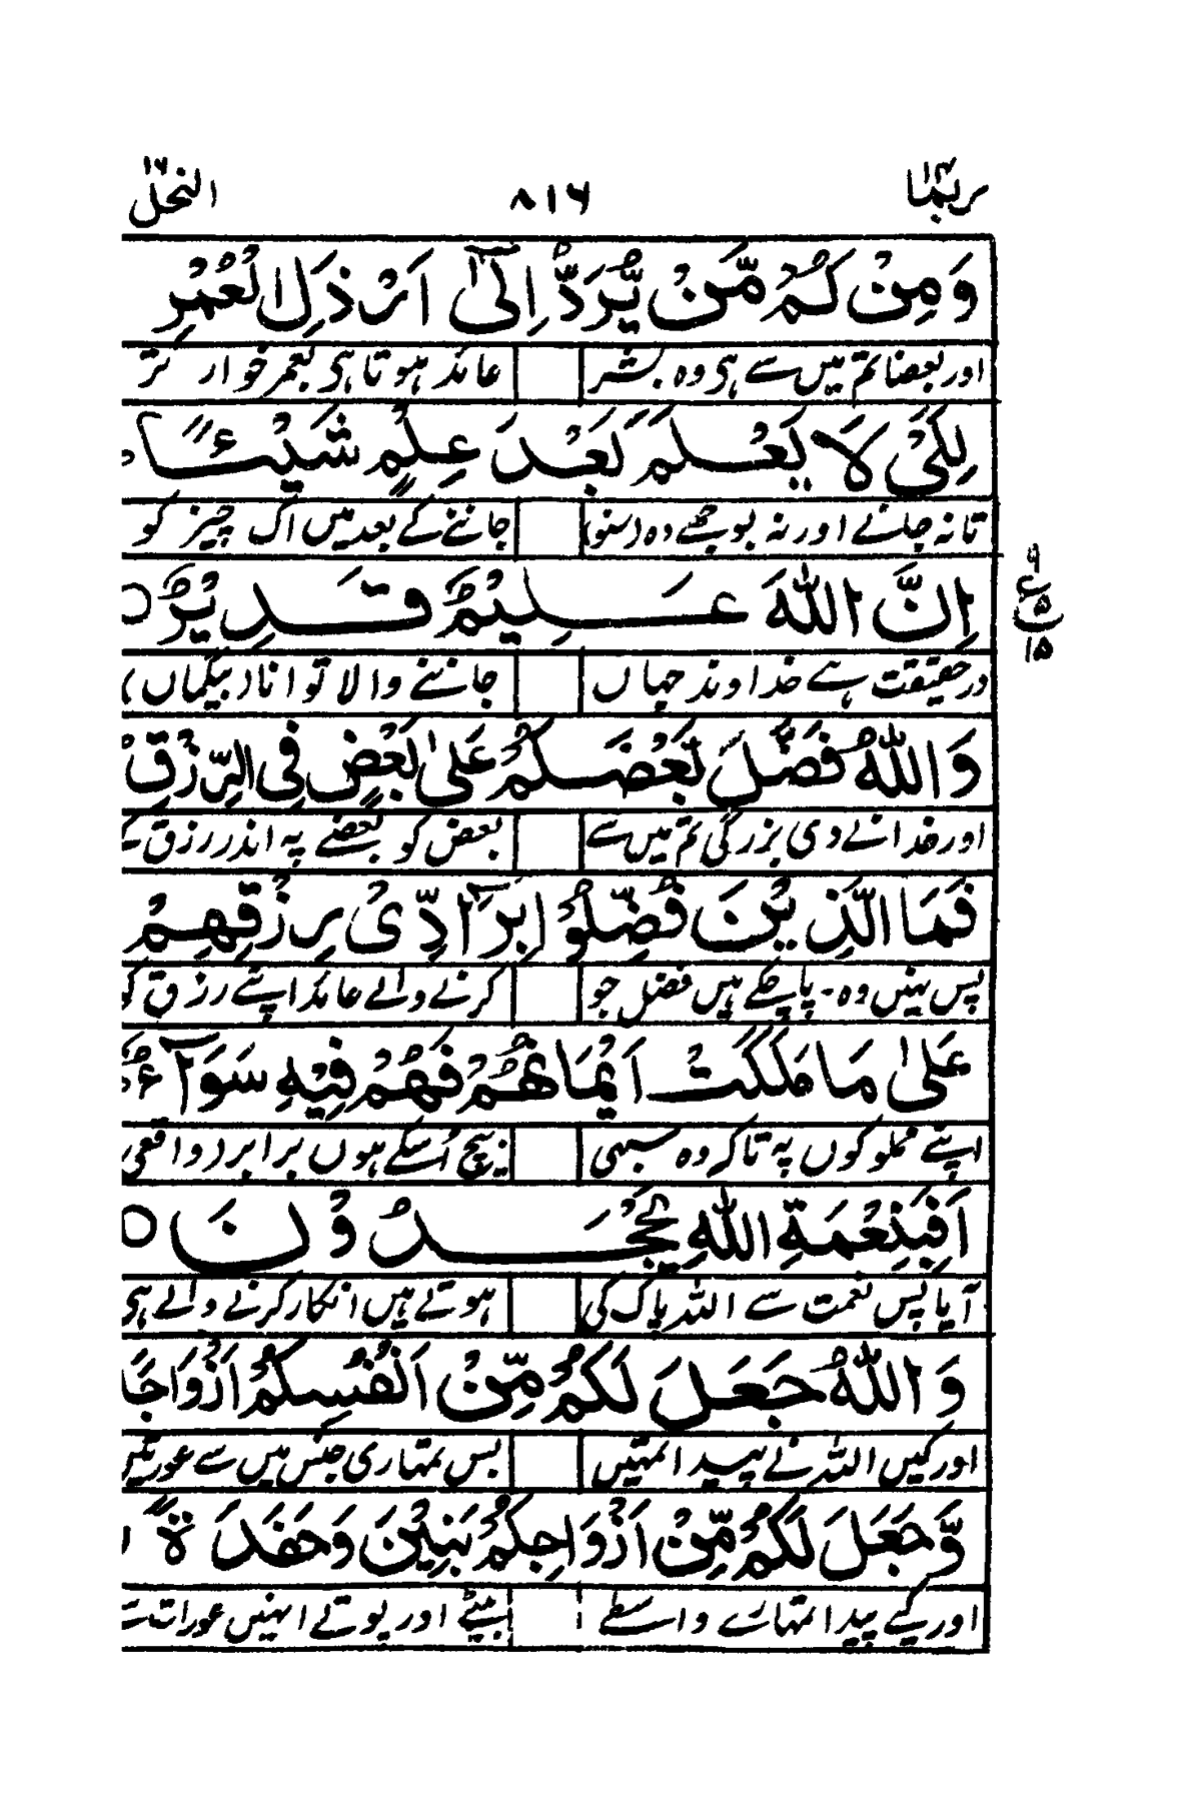 ربما ۱۴ ۸۱۶ النحل ۱۶
وَمِنْكُمْ مَّنْ يُّرَدُّ اِلٰٓى اَرْذَلِ الْعُمُرِ
اور بعضا تم میں سے ہی وہ بشر عائد ہوتا ہی بعمر خوار تر
لِكَيْ لَا يَعْلَمَ بَعْدَ عِلْمٍ شَيْـًٔا
تا نہ جانے اور نہ بوجھے وہ (سنو) جاننے کے بعد میں اک چیز کو
اِنَّ اللّٰهَ عَلِيْمٌ قَدِيْرٌ ○
۹ ع ۵ ۱۵
در حقیقت ہے خداوند جہاں جاننے والا توانا بیگماں)
وَاللّٰهُ فَضَّلَ بَعْضَكُمْ عَلٰى بَعْضٍ فِي الرِّزْقِ
اور خدا نے دی بزرگی تم میں سے بعض کو بعضے پہ اندر رزق کے
فَمَا الَّذِيْنَ فُضِّلُوْا بِرَآدِّيْ رِزْقِهِمْ
پس نہیں وہ۔ پا چکے ہیں فضل جو کرنے والے عائد اپنے رزق کو
عَلٰى مَا مَلَكَتْ اَيْمَانُهُمْ فَهُمْ فِيْهِ سَوَآءٌ
اپنے مملوکوں پہ تا کہ وہ سبھی بیچ اُسکے ہوں برابر (واقعی
اَفَبِنِعْمَةِ اللّٰهِ يَجْحَدُوْنَ ○
آیا پس نعمت سے اللہ پاک کی ہوتے ہیں انکار کرنے والے ہی
وَاللّٰهُ جَعَلَ لَكُمْ مِّنْ اَنْفُسِكُمْ اَزْوَاجًا
اور کیں اللہ نے پیدا تمہیں بس تمہاری جنس میں سے عورتیں
وَّجَعَلَ لَكُمْ مِّنْ اَزْوَاجِكُمْ بَنِيْنَ وَحَفَدَةً
اور کیے پیدا تمہارے واسطے بیٹے اور پوتے انہیں عورات سے